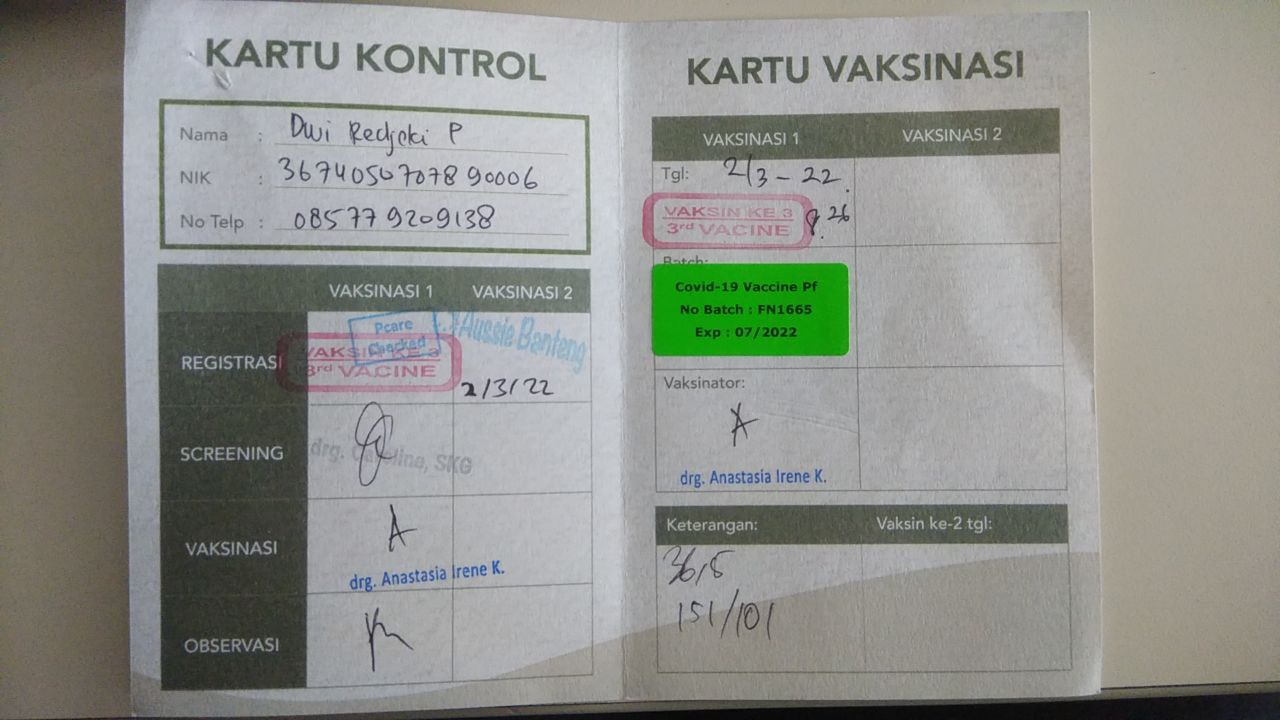 KARTU KONTROL
Nama : Dwi Redjeki P
NIK : 3674050707890006
No Telp : 085779209138
VAKSINASI 1 VAKSINASI 2
REGISTRASI
Pcare
Checked
Aussie Banteng
VAKSIN KE 3
3rd VACINE
2/3/22
SCREENING
drg. Carolina, SKG
VAKSINASI
drg. Anastasia Irene K.
OBSERVASI
KARTU VAKSINASI
VAKSINASI 1 VAKSINASI 2
Tgl: 2/3-22.
VAKSIN KE 3
3rd VACINE
8.26
Batch:
Covid-19 Vaccine Pf
No Batch : FN1665
Exp : 07/2022
Vaksinator:
drg. Anastasia Irene K.
Keterangan: Vaksin ke-2 tgl:
36,5
151/101